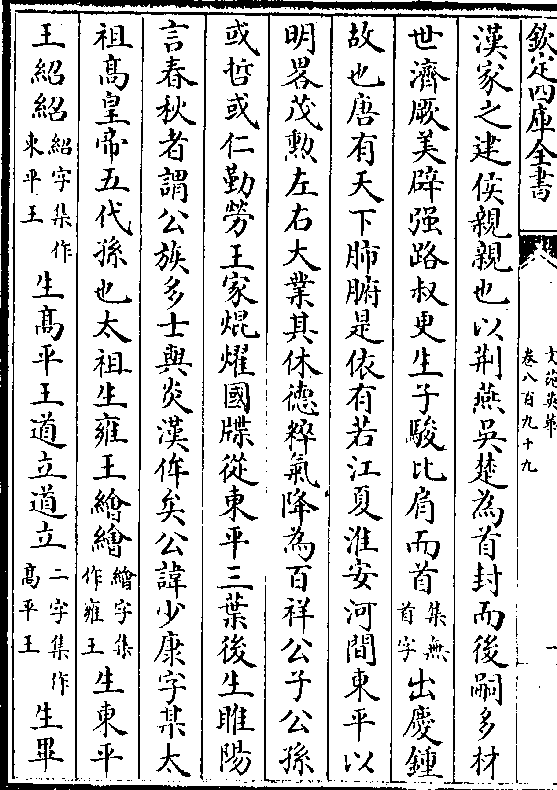 欽定四庫全書
文苑英華
卷八百九十九
一
漢家之建侯親親也以荆燕吳楚為首封而後嗣多材
世濟厥美辟强路叔更生子駿比肩而首集無首字出慶鍾
故也唐有天下肺腑是依有若江夏淮安河間東平以
明畧茂勲左右大業其休德粹氣降為百祥公子公孫
或哲或仁勤勞王家焜燿國牒從東平三葉後生睢陽
言春秋者謂公族多士與炎漢侔矣公諱少康字某太
祖高皇帝五代孫也太祖生雍王繪繪繪字集作雍王生東平
王紹紹紹字集作東平王生高平王道立道立二字集作高平王生畢